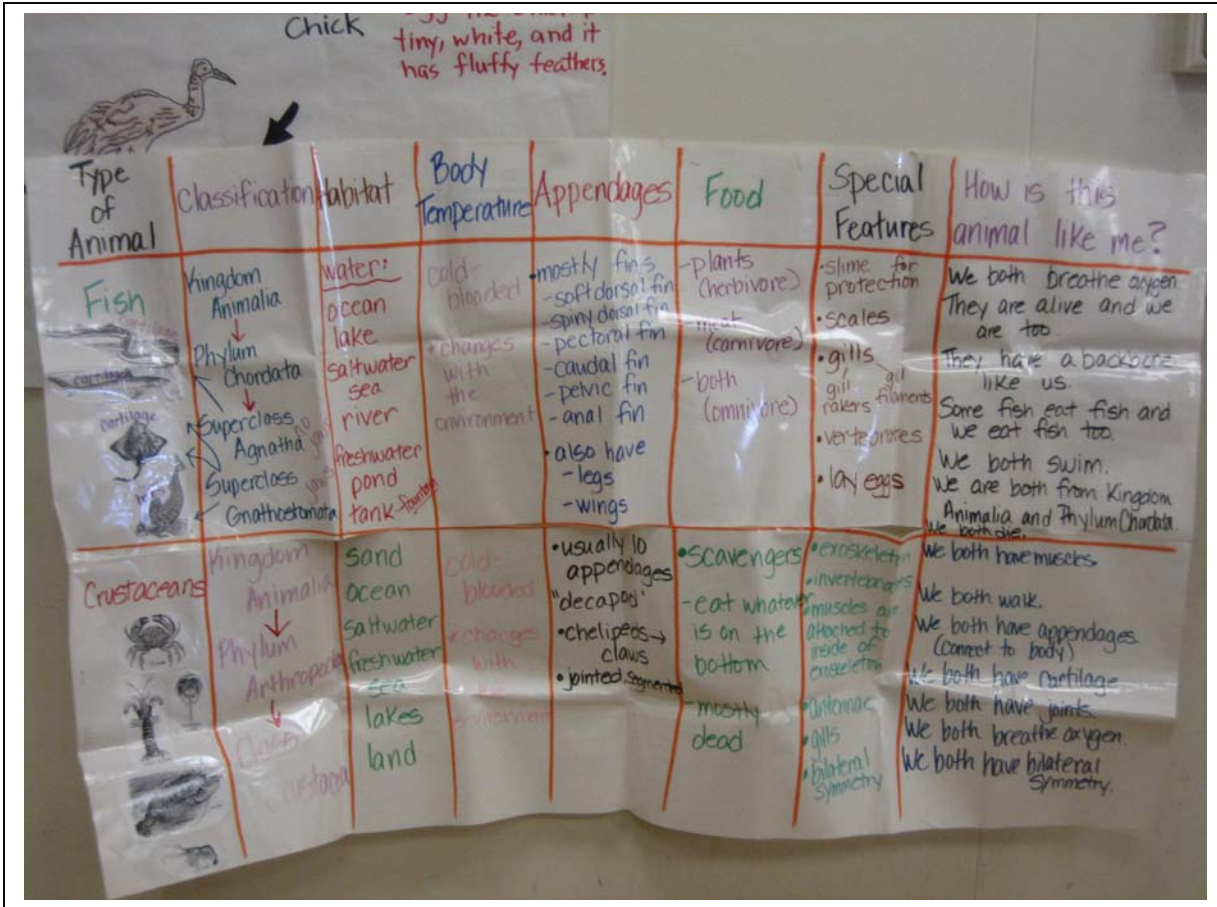 Chick
tiny, white, and it
has fluffy feathers.
Type
of
Animal
Classification
Habitat
Body
Temperature
Appendages
Food
Special
Features
How is this
animal like me?
Fish
cartilage
cartilage
Kingdom
Animalia
Phylum
Chordata
Superclass
Agnatha no jaws
Superclass
Gnathostomata jaws
water:
ocean
lake
saltwater
sea
river
freshwater
pond
tank-
cold-
blooded
*changes
with
the
environment
•mostly fins
-soft dorsal fin
-spiny dorsal fin
-pectoral fin
-caudal fin
-pelvic fin
-anal fin
•also have
-legs
-wings
-plants
(herbivore)
-meat
(carnivore)
-both
(omnivore)
•slime for
protection
•scales
•gills
gill
rakers
gill
filaments
•lay eggs
We both breathe oxygen.
They are alive and we
are too.
They have a backbone
like us.
Some fish eat fish and
we eat fish too.
We both swim.
We are both from Kingdom
Animalia and Phylum Chordata.
We both die.
Crustaceans
Kingdom
Animalia
Phylum
Arthropoda
Class
Crustacea
sand
ocean
saltwater
freshwater
sea
lakes
land
cold-
blooded
*changes
with
the
environment
•usually 10
appendages
"decapod"
•chelipeds→
claws
•jointed, segmented
•scavengers
-eat whatever
is on the
bottom
-mostly
dead
•exoskeleton
•invertebrates
•muscles are
attached to
inside of
exoskeleton
•antennae
•gills
•bilateral
symmetry
We both have muscles.
We both walk.
We both have appendages.
(connect to body)
We both have cartilage
We both have joints.
We both breathe oxygen.
We both have bilateral
symmetry.